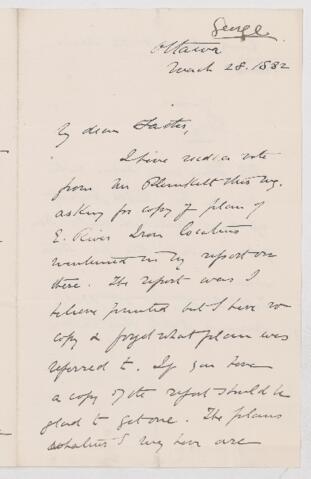 George
Ottawa
March 28. 1882
My dear Father,
I have recd a note
from Mr Plunkett this mg.
asking for copy of plan of
E. River Iron Locations
mentioned in my report on
there. The report was I
believe printed but I have no
copy & forget what plan was
referred to. If you have
a copy of the report should be
glad to get one. The plans
I may have are